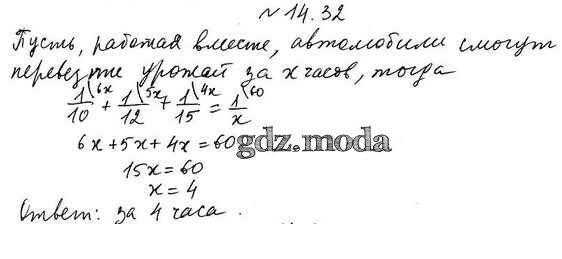 № 14.32
Пусть, работая вместе, автомобили смогут
перевезти урожай за x часов, тогда
1/10 \6x + 1/12 \5x + 1/15 \4x = 1/x \60
6x + 5x + 4x = 60
gdz.moda
15x = 60
x = 4
Ответ: за 4 часа.